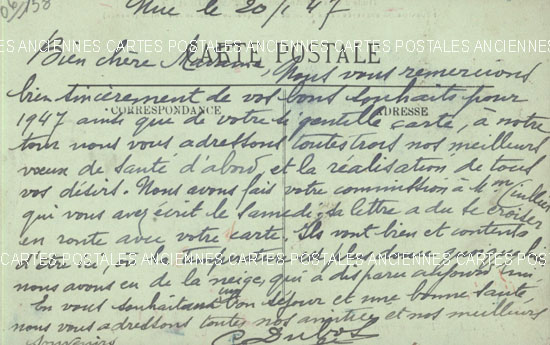 06/158
Nice le 20/1 47
CARTES POSTALES ANCIENNES CARTES POSTALES ANCIENNES CARTES POSTALES ANCIENNES
CARTE POSTALE
Bien chère Madame, Nous vous remercions
bien sincèrement de vos bons souhaits pour
CORRESPONDANCE
ADRESSE
1947 ainsi que de votre si gentille carte, a notre
tour nous vous adressons toutes trois nos meilleurs
vœux de santé d'abord et la réalisation de tous
vos désirs. Nous avons fait votre commission à
qui vous avez écrit le Samedi; sa lettre a du se croiser
en route avec votre carte. Ils vont bien et contents
d'être ici,
nous avons eu de la neige, qui a disparu aujourd'hui
En vous souhaitant bon séjour et une bonne santé
nous vous adressons toutes nos amitiés et nos meilleurs
souvenirs